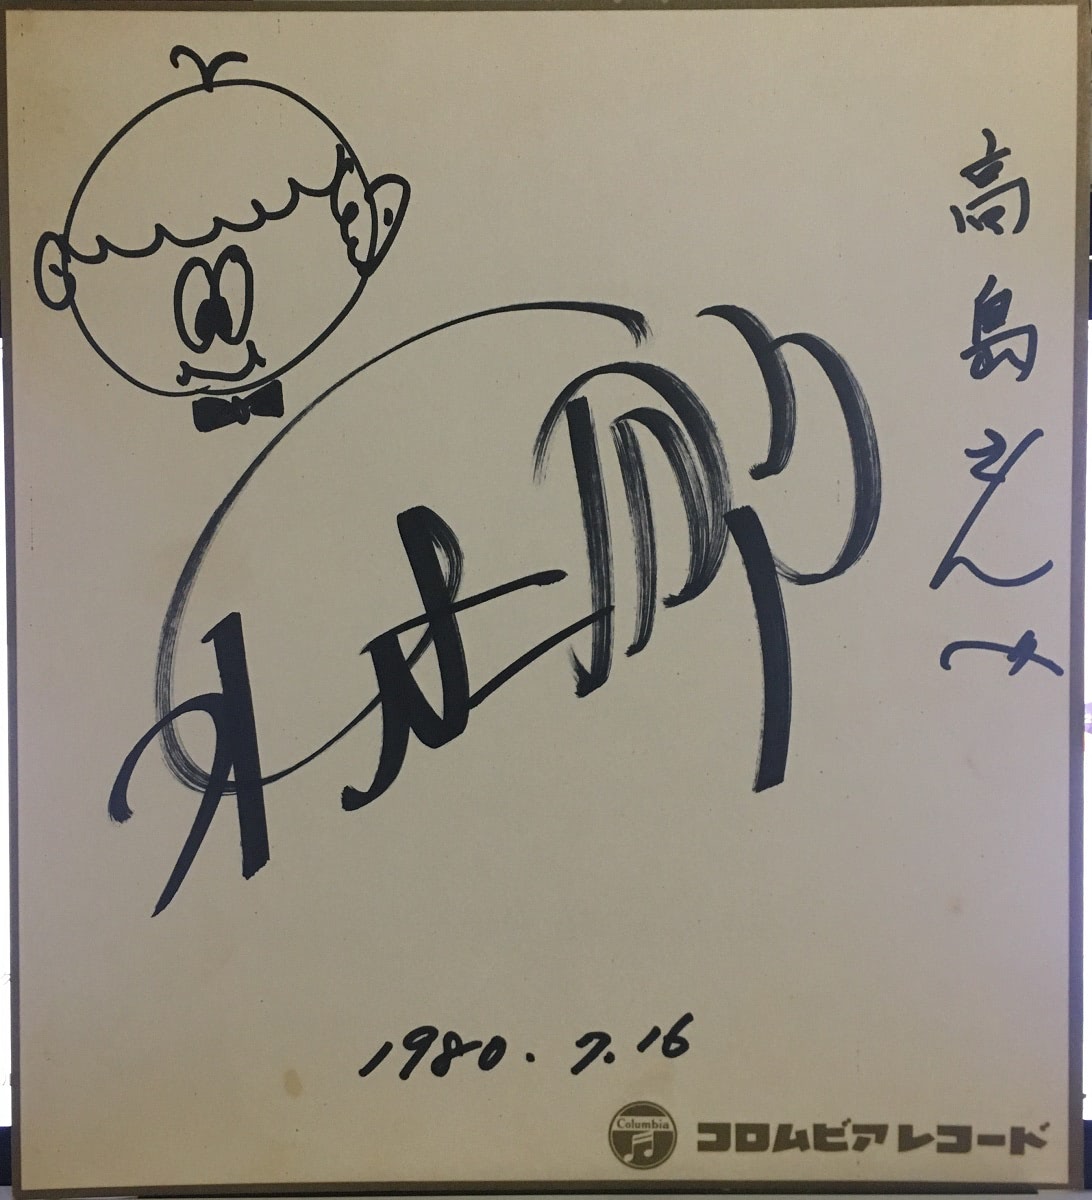 高島さんへ
1980.7.16
Columbia
コロムビアレコード